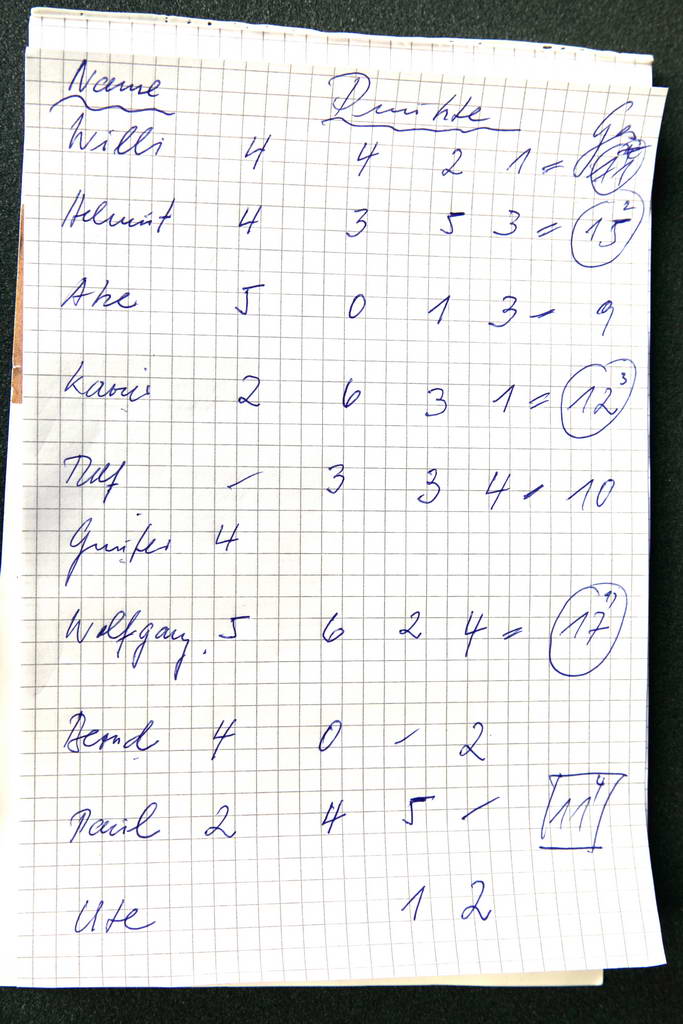 Name Punkte
Willi 4 4 2 1 = 11
Helmut 4 3 5 3 = 15 2
5 0 1 3 - 9
Karin 2 6 3 1 = 12 3
Rolf - 3 3 4 = 10
Günter 4
Wolfgang. 5 6 2 4 = 17 1)
Bernd 4 0 - 2
Paul 2 4 5 - 11 4
Ute 1 2